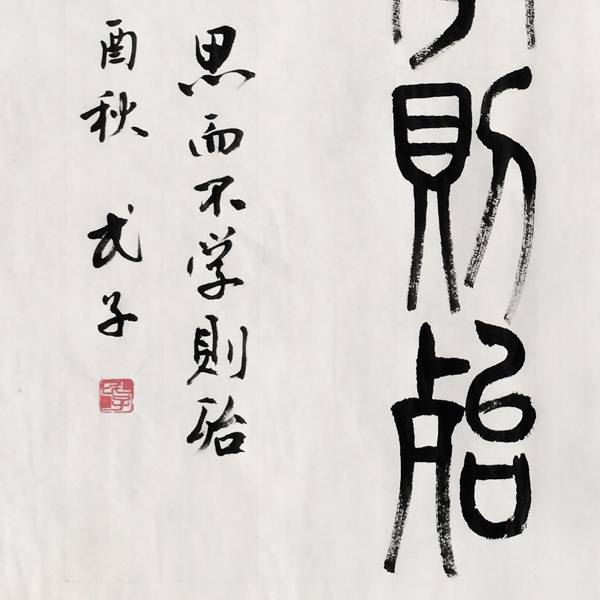 則殆
思而不学則殆
酉秋 弐子